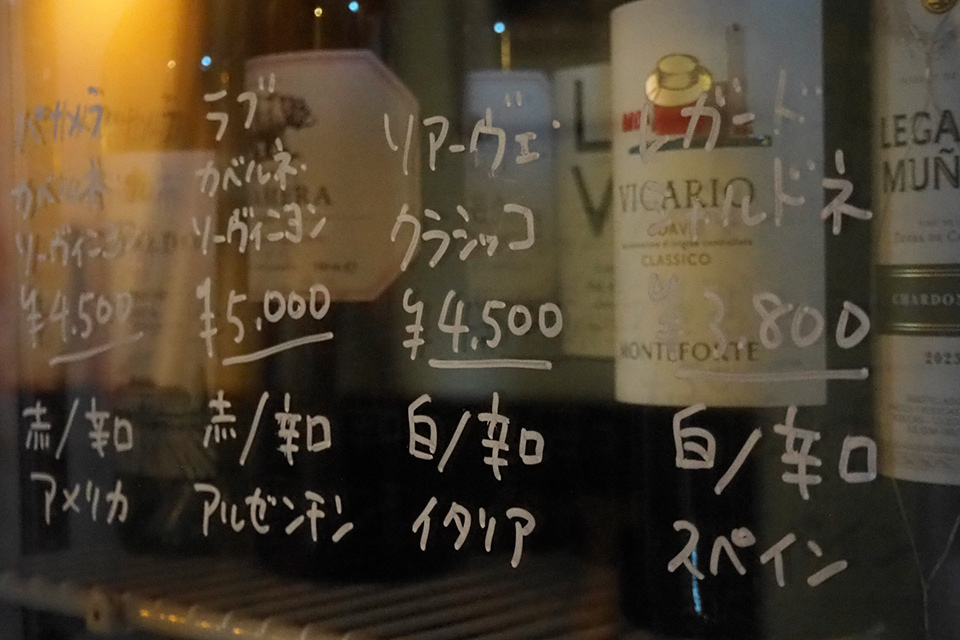 パサメラ
カベルネ
ソーヴィニヨン
¥4.500
赤/辛口
アメリカ
ラブ
カベルネ・
ソーヴィニヨン
¥5.000
赤/辛口
アルゼンチン
ソアーヴェ・
クラシッコ
¥4.500
白/辛口
イタリア
レガード
シャルドネ
¥3.800
白/辛口
スペイン
VICARIO
CLASSICO
MONTEFORTE
LEGA
MUÑ
CHARDON
2023